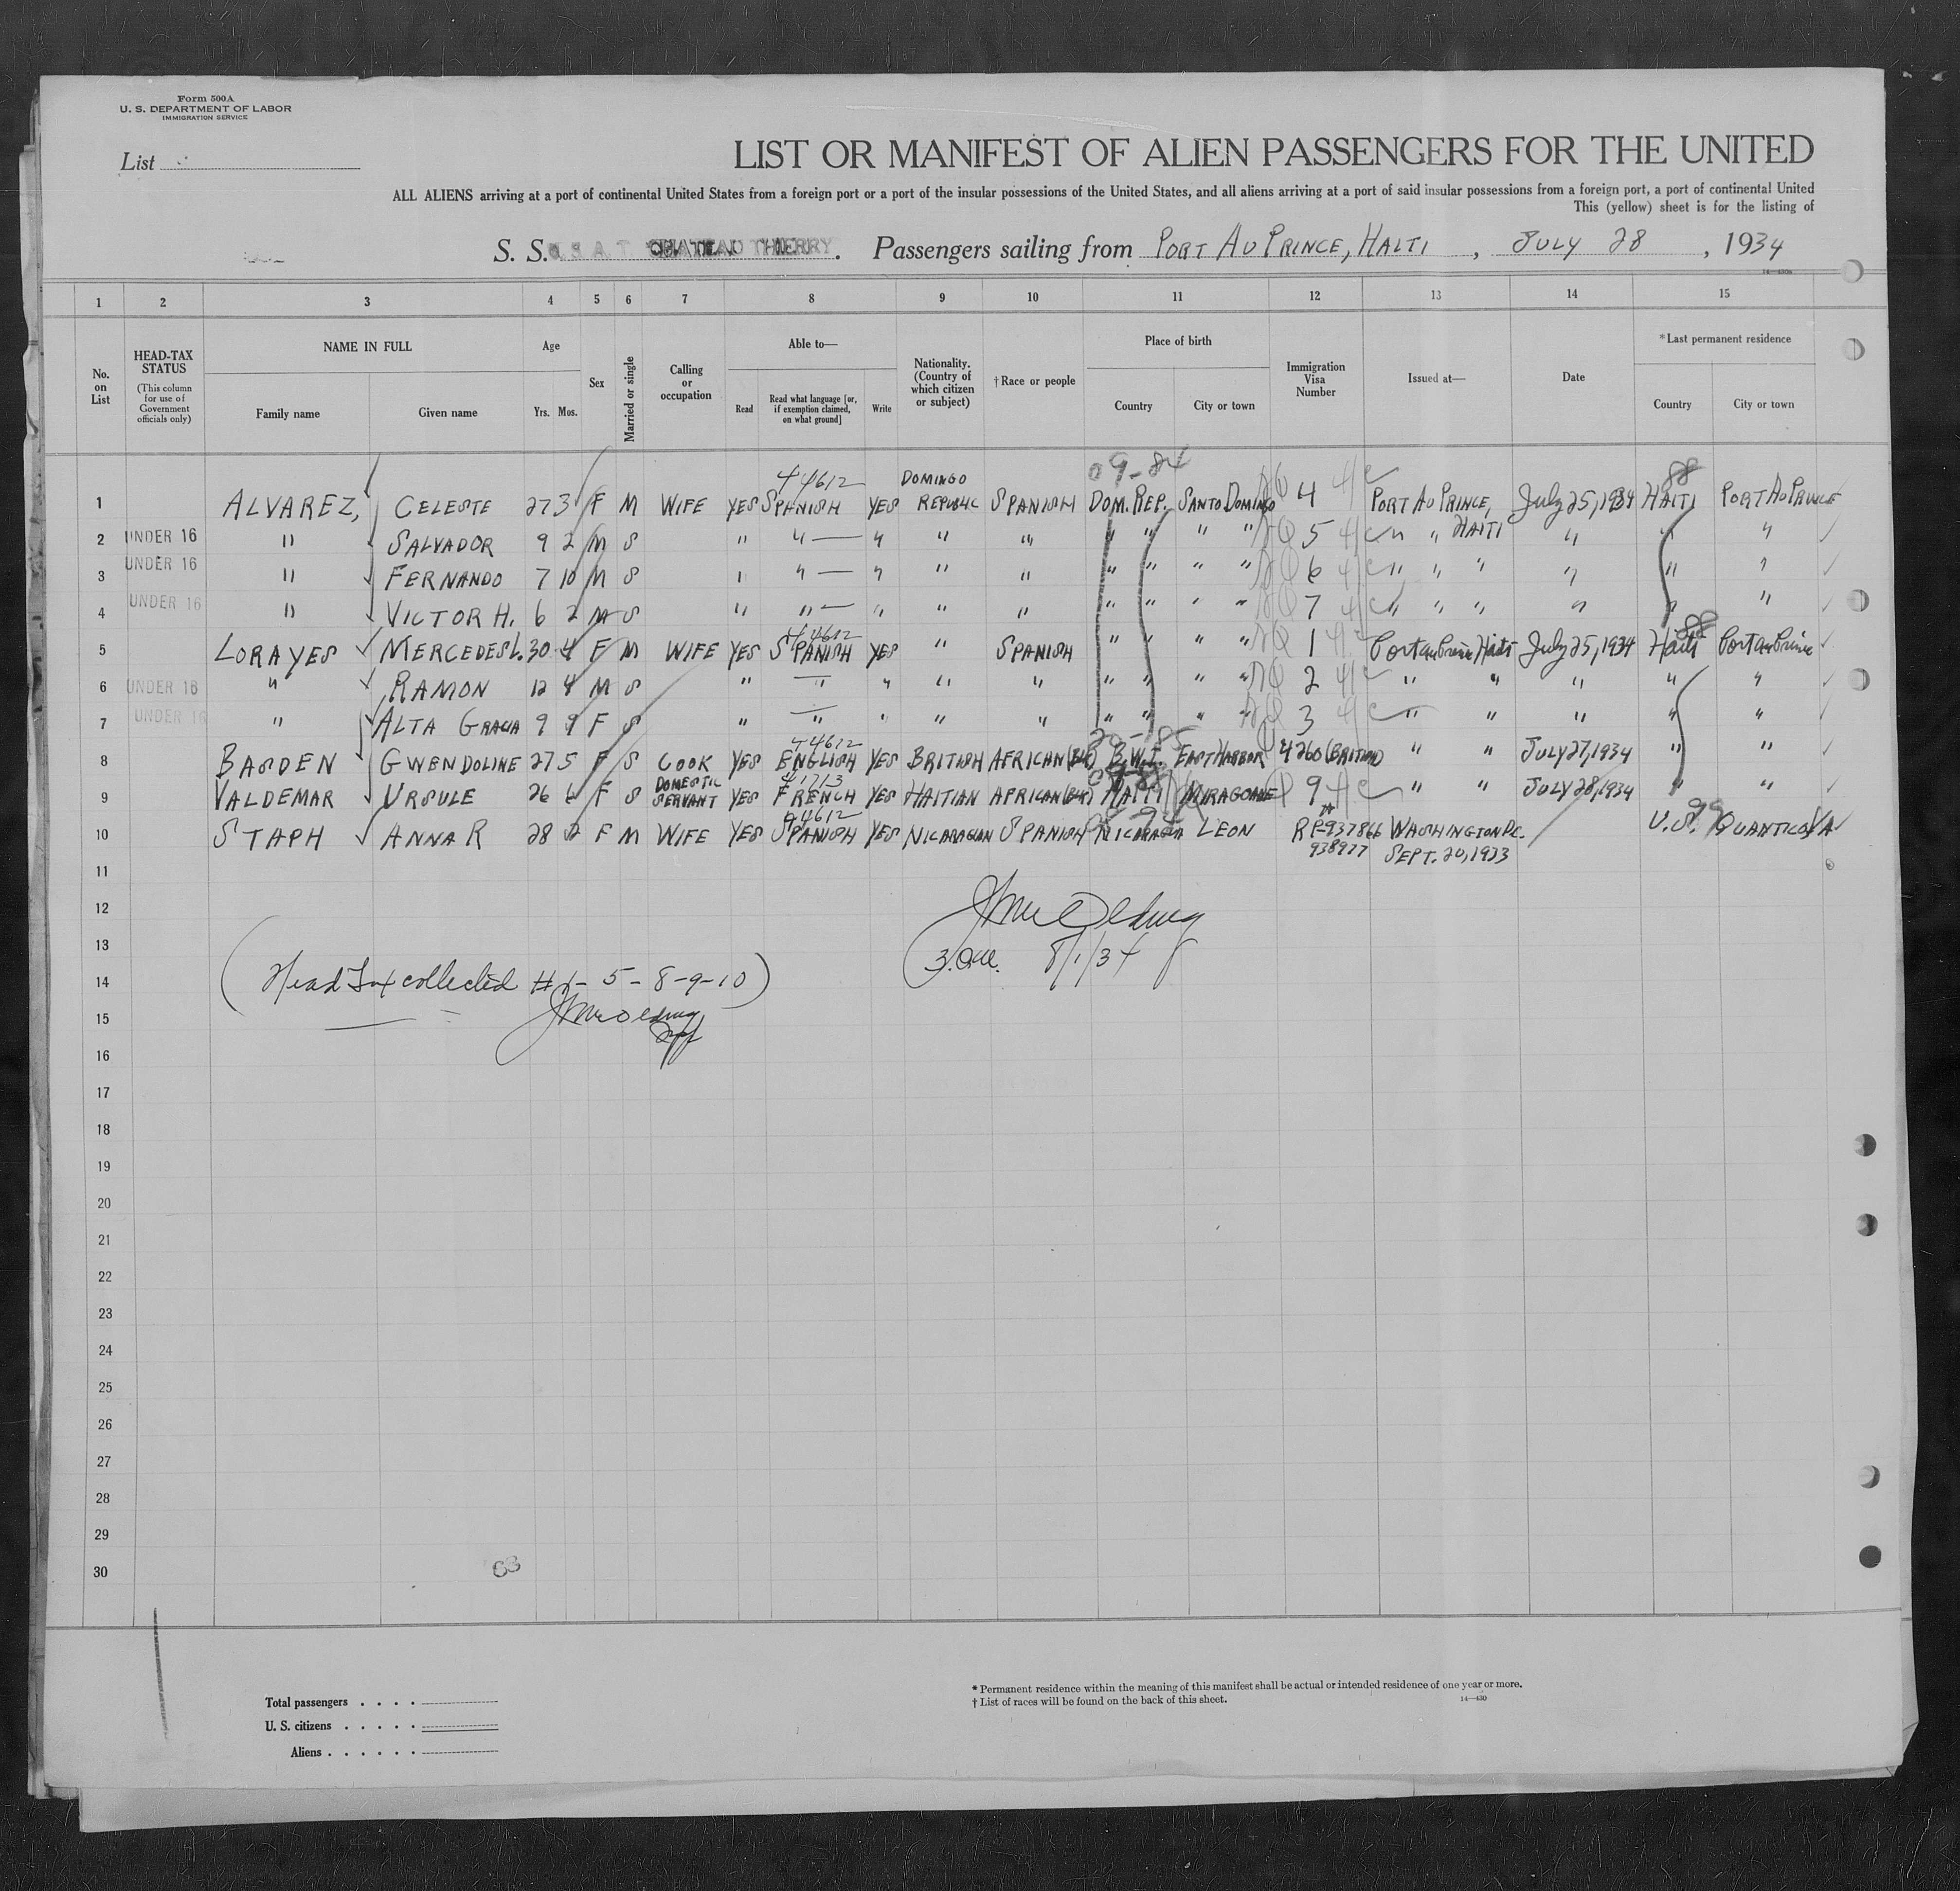 Form 500A
U. S. DEPARTMENT OF LABOR
IMMIGRATION SERVICE
List
LIST OR MANIFEST OF ALIEN PASSENGERS FOR THE UNITED
ALL ALIENS arriving at a port of continental United States from a foreign port or a port of the insular possessions of the United States, and all aliens arriving at a port of said insular possessions from a foreign port, a port of continental United
This (yellow) sheet is for the listing of
S. S. U.S.A.T. CHATEAU THIERRY. Passengers sailing from PORT AU PRINCE, HAITI, JULY 28, 1934
1 2 3 4 5 6 7 8 9 10 11 12 13 14 15
No. on List
HEAD-TAX STATUS (This column for use of Government officials only)
NAME IN FULL
Family name
Given name
Age
Yrs. Mos.
Sex
Married or single
Calling or occupation
Able to—
Read
Read what language [or, if exemption claimed, on what ground]
Write
Nationality. (Country of which citizen or subject)
† Race or people
Place of birth
Country
City or town
Immigration Visa Number
Issued at—
Date
* Last permanent residence
Country
City or town
44612 DOMINGO 09-84 88
1 ALVAREZ, CELESTE 27 3 F M WIFE YES SPANISH YES REPUBLIC SPANISH DOM. REP. SANTO DOMINGO 4 PORT AU PRINCE, HAITI July 25, 1934 HAITI PORT AU PRINCE
2 UNDER 16 " SALVADOR 9 2 M S " " — " " " " " " " 5 " " " " "
3 UNDER 16 " FERNANDO 7 10 M S " " — " " " " " " " 6 " " " " " "
4 UNDER 16 " VICTOR H. 6 2 M S " " — " " " " " " " 7 " " " " " "
44612 88
5 LORAYES MERCEDES L. 30 4 F M WIFE YES SPANISH YES " SPANISH " " " " 1 Port au Prince Haiti July 25, 1934 Haiti Port au Prince
6 UNDER 16 " RAMON 12 4 M S " " " " " " " " " 2 " " " " "
7 UNDER 16 " ALTA GRACIA 9 9 F S " " " " " " " " " 3 " " " " "
44612
8 BASDEN GWENDOLINE 27 5 F S COOK YES ENGLISH YES BRITISH AFRICAN (BLK) B.W.I. EAST HARBOR 4260 (BRITISH) " " JULY 27, 1934 " "
41713
9 VALDEMAR URSULE 26 6 F S DOMESTIC SERVANT YES FRENCH YES HAITIAN AFRICAN (BLK) HAITI MIRAGOANE 9 " " JULY 28, 1934 " "
44612 99
10 STAPH ANNA R 28 2 F M WIFE YES SPANISH YES NICARAGUAN SPANISH NICARAGUA LEON RP-937866 WASHINGTON DC. U.S. QUANTICO VA
938977 SEPT. 20, 1933
11
12
13
8/1/34
14 (Head Tax collected #1-5-8-9-10)
15
16
17
18
19
20
21
22
23
24
25
26
27
28
29
30
63
Total passengers
U. S. citizens
Aliens
* Permanent residence within the meaning of this manifest shall be actual or intended residence of one year or more.
† List of races will be found on the back of this sheet.
14—430